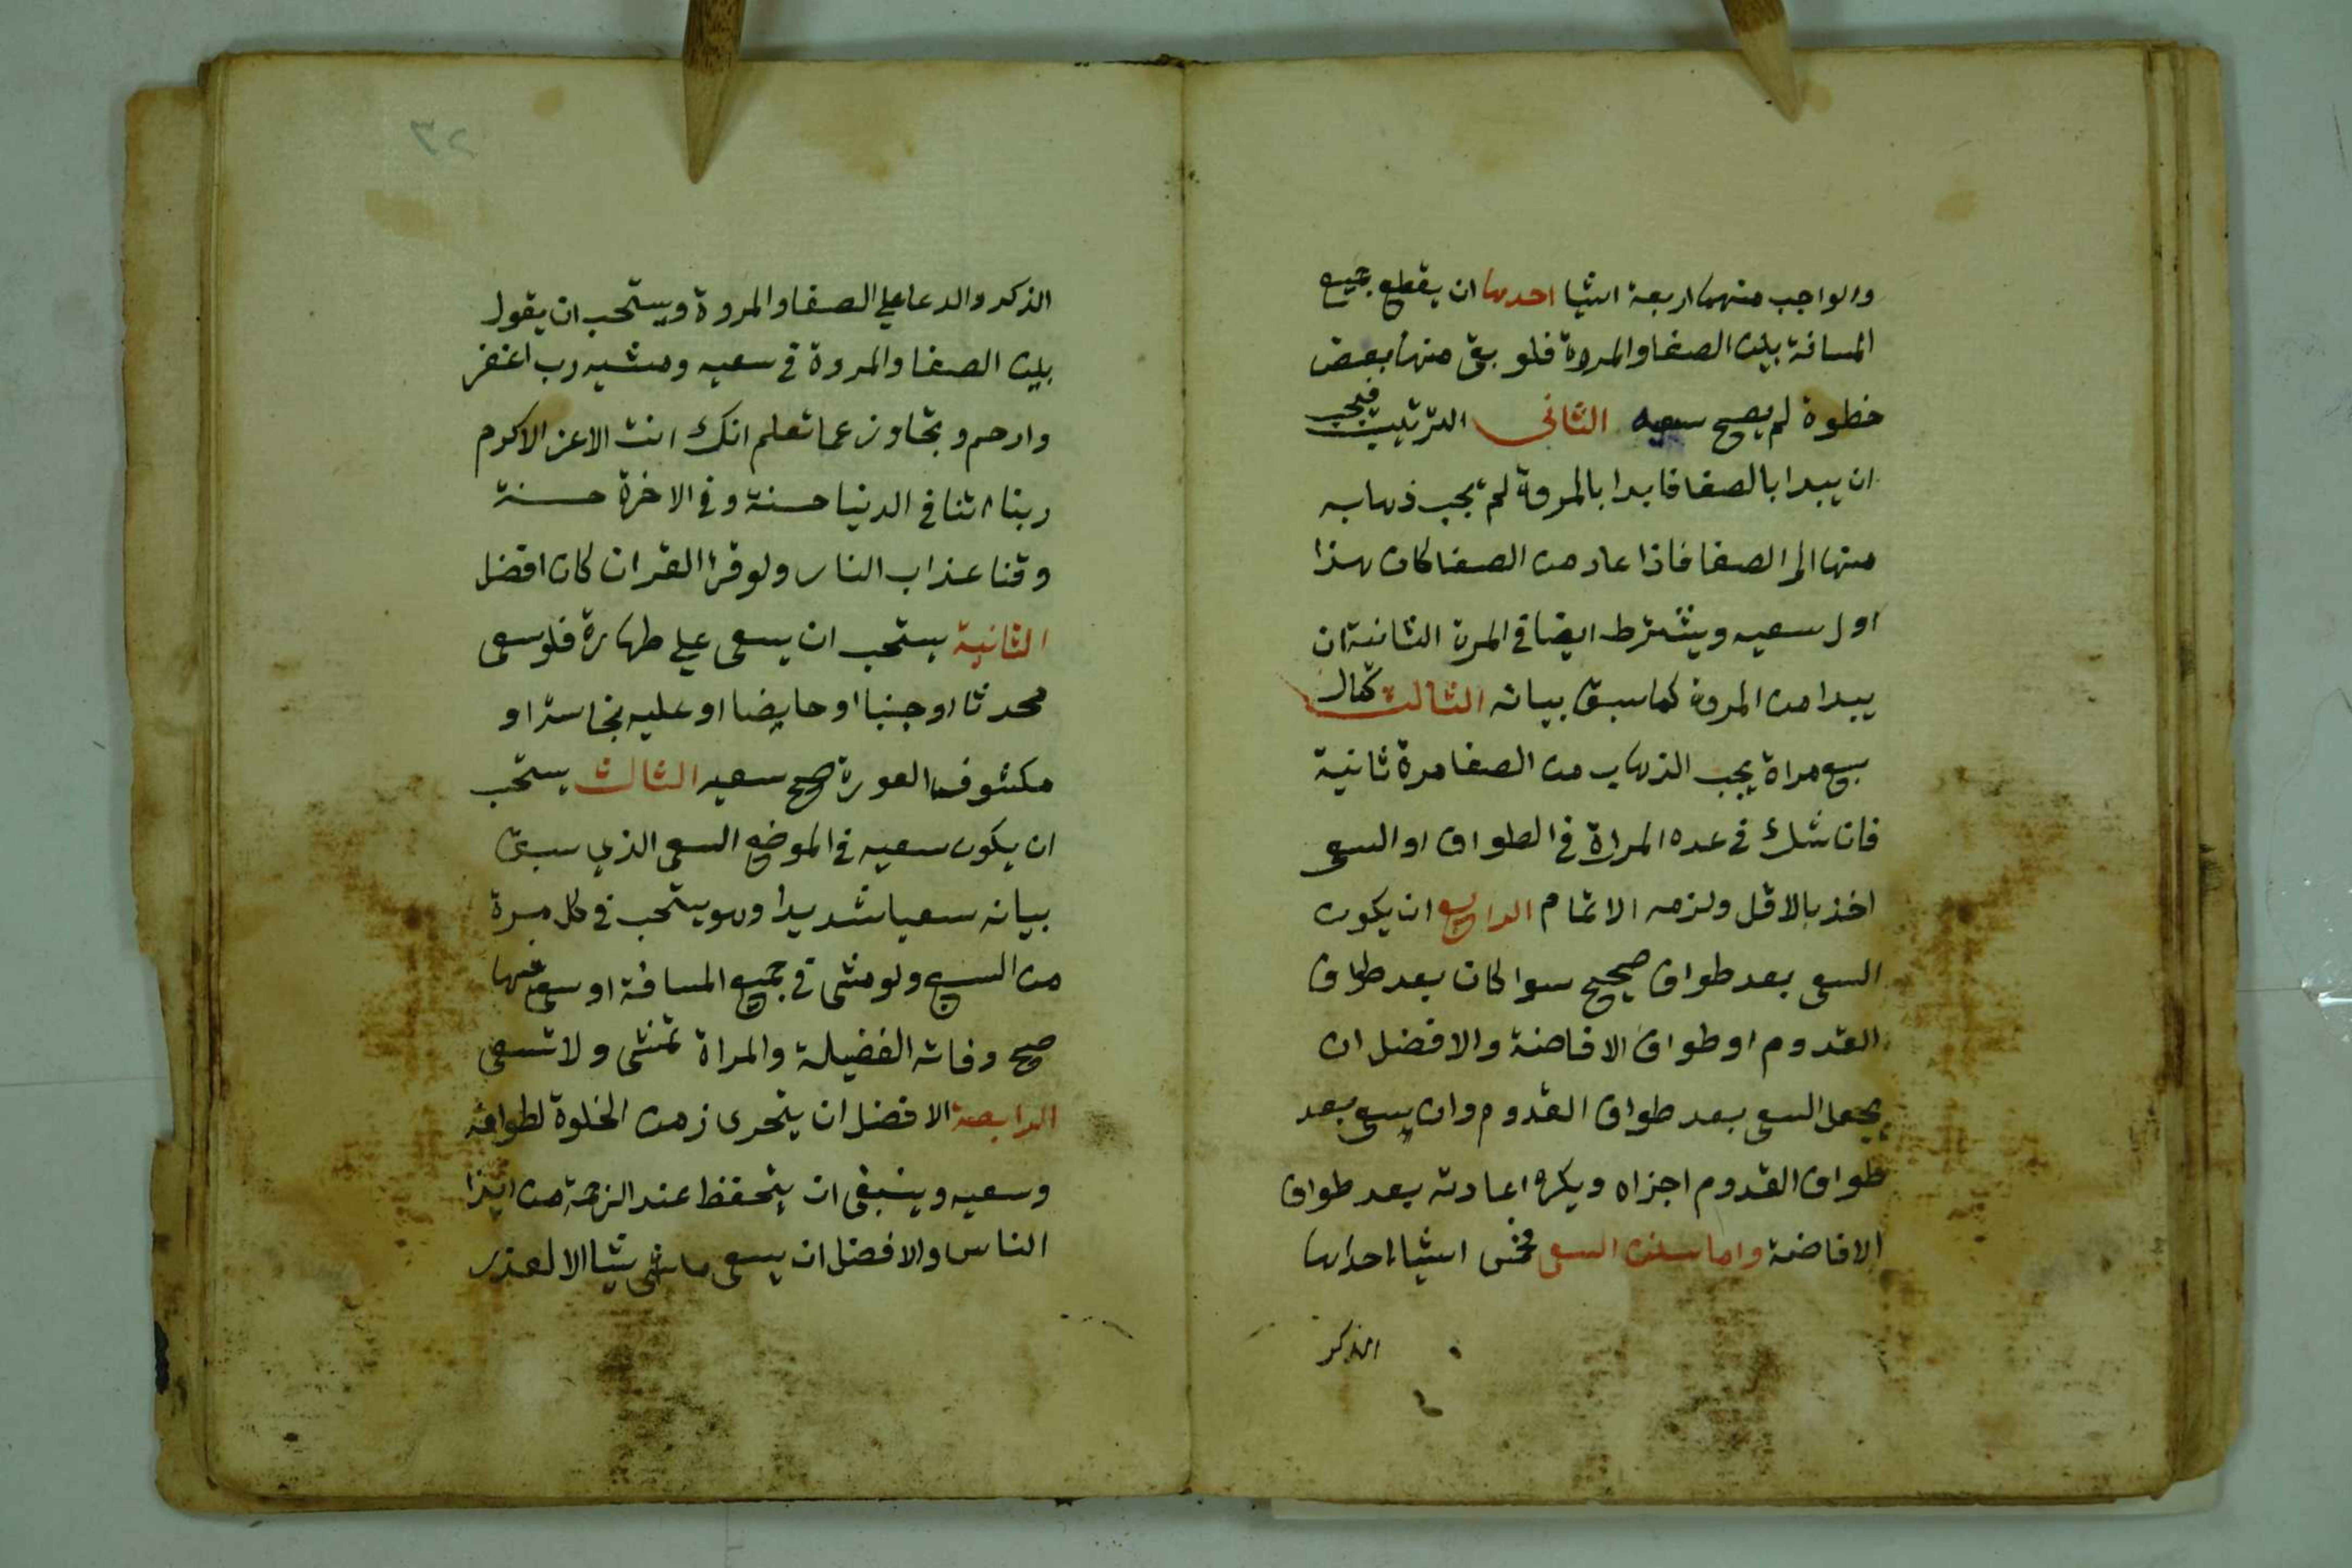 والواجب منهما اربعة اشيا احدها ان يقطع جميع
المسافة بين الصفا والمروة فلو بقى منها بعض
خطوة لم يصح سعيه الثانى الترتيب فيجب
ان يبدا بالصفا فابدا بالمروة لم يجب ذهابه
منها الى الصفا فاذا عاد من الصفا كان هذا
اول سعيه ويشترط ايضا في المرة الثانية ان
يبدا من المروة كما سبق بيانه الثالث كمال
سبع مراة يجب الذهاب من الصفا مرة ثانية
فان شك في عده المراة في الطواف او السعى
اخذ بالاقل ولزمه الاتمام الرابع ان يكون
السعى بعد طواف صحيح سوا كان بعد طواف
القدوم او طواف الافاضة والافضل ان
يجعل السعى بعد طواف القدوم وان يسعى بعد
طواف القدوم اجزاه ويكره اعادته بعد طواف
الافاضة واما سنن السعى فخمس اشياء احداها
الذكر
٢٣
الذكر والدعا على الصفا والمروة ويستحب ان يقول
بين الصفا والمروة في سعيه ومشيه رب اغفر
وارحم وتجاوز عما تعلم انك انت الاعز الاكرم
ربنا اتنا في الدنيا حسنة وفي الاخرة حسنة
وقنا عذاب النار ولو قرا القران كان افضل
الثانية يستحب ان يسعى على طهارة فلو سعى
محدثا او جنبا او حايضا او عليه نجاسة او
مكشوف العورة صح سعيه الثالث يستحب
ان يكون سعيه في الموضع السعى الذي سبق
بيانه سعيا شديدا وهو يستحب في كل مرة
من السبع ولو مشى في جميع المسافة او سعى
صح وفاته الفضيلة والمراة تمشى ولا تسعى
الرابعة الافضل ان يتحرى زمن الخلوة لطوافه
وسعيه وينبغى ان يتحفظ عند الزحمة من ايذا
الناس والافضل ان يسعى ماشى الا لعذر